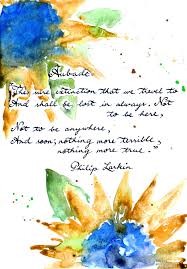 Aubade
"The sure extinction that we travel to
And shall be lost in always. Not
to be here,
Not to be anywhere,
And soon; nothing more terrible,
nothing more true."
Philip Larkin